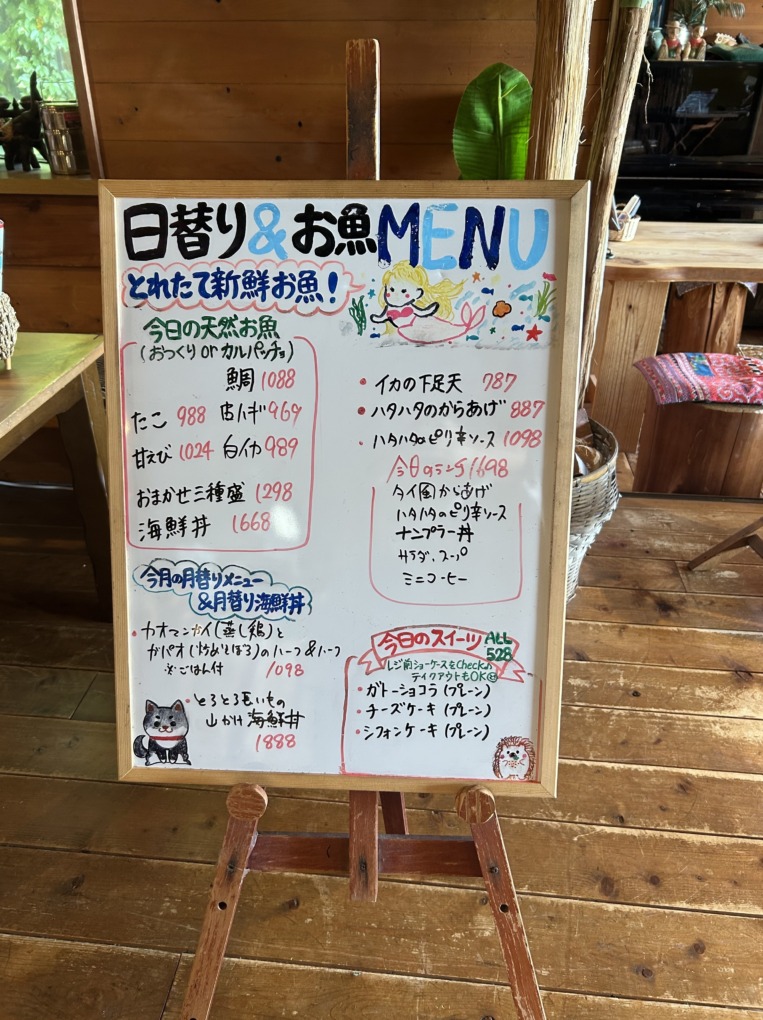 日替り&お魚MENU
とれたて新鮮お魚!
今日の天然お魚
(おつくり or カルパッチョ)
鯛 1088
たこ 988 白ハギ 969
甘えび 1024 白イカ 989
おまかせ三種盛 1298
海鮮丼 1668
今月の月替りメニュー
&月替り海鮮丼
・カオマンガイ(蒸し鶏)と
ガパオ(炒めそぼろ)のハーフ&ハーフ
※ごはん付 1098
・とろとろ長いもの
山かけ海鮮丼
1888
・イカの下足天 787
・ハタハタのからあげ 887
・ハタハタのピリ辛ソース 1098
今日のランチ 1698
タイ国からあげ
ハタハタのピリ辛ソース
ナンプラー丼
サラダ、スープ
ミニコーヒー
今日のスイーツ ALL 528
レジ前ショーケースをCheck
テイクアウトもOK
・ガトーショコラ(プレーン)
・チーズケーキ(プレーン)
・シフォンケーキ(プレーン)